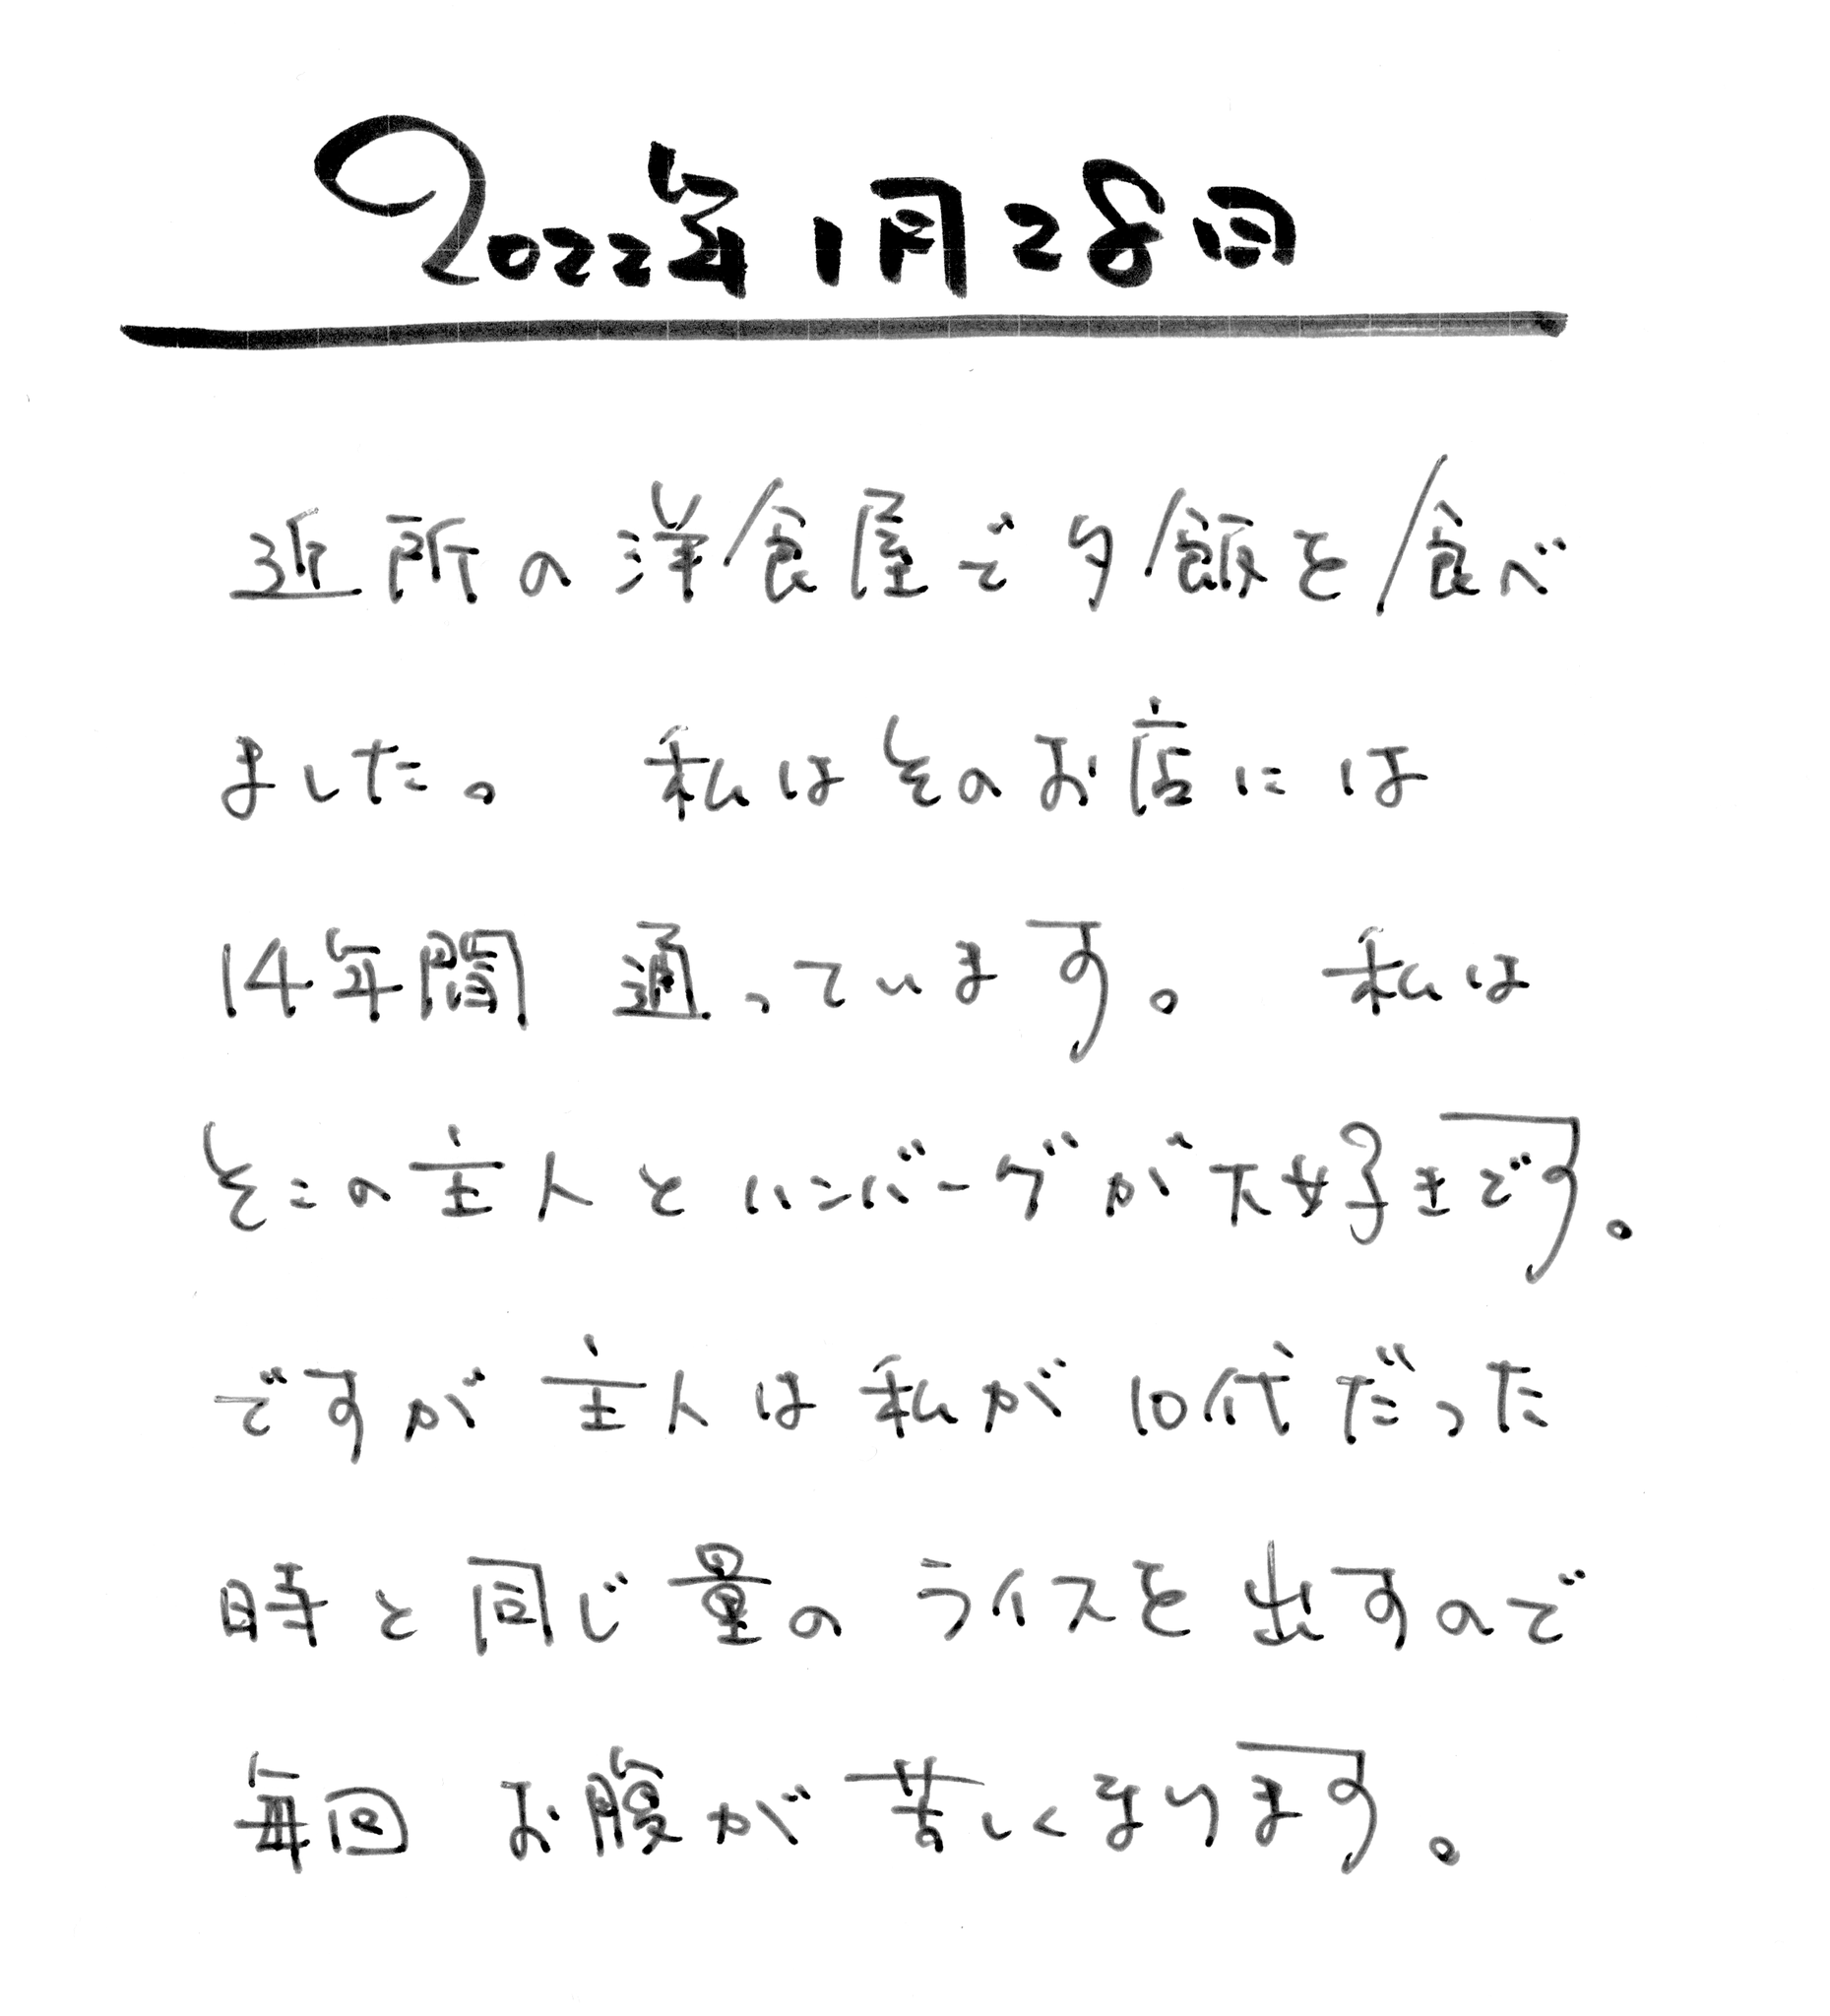 2022年1月28日
近所の洋食屋で夕飯を食べ
ました。 私はそのお店には
14年間 通っています。 私は
そこの主人とハンバーグが大好きです。
ですが主人は私が10代だった
時と同じ量のライスを出すので
毎回 お腹が苦しくなります。